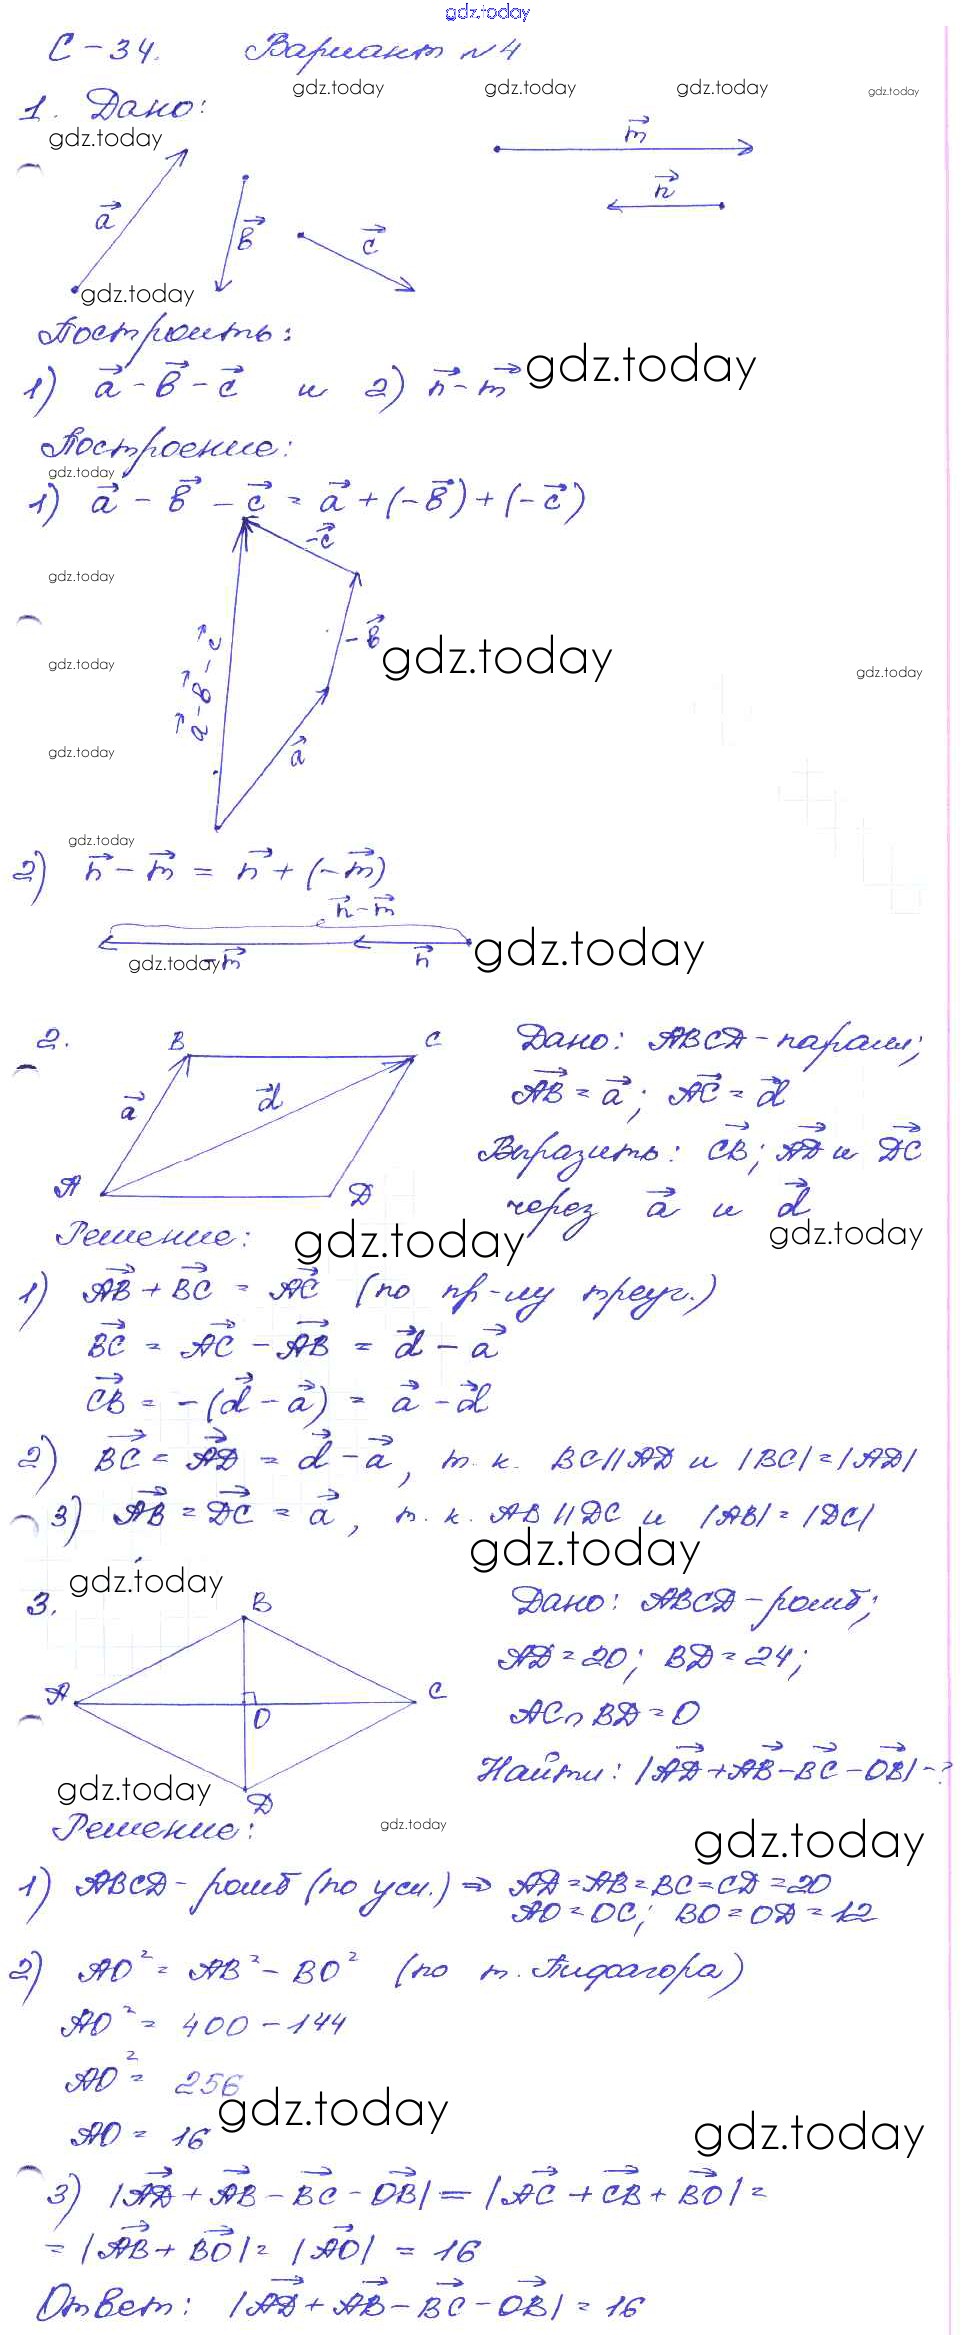 gdz.today
С-34. Вариант №4
gdz.today gdz.today gdz.today gdz.today
1. Дано:
gdz.today
m⃗
n⃗
a⃗ b⃗ c⃗
gdz.today
Построить:
1) a⃗ - b⃗ - c⃗ и 2) n⃗ - m⃗ gdz.today
Построение:
gdz.today
1) a⃗ - b⃗ - c⃗ = a⃗ + (-b⃗) + (-c⃗)
-c⃗
gdz.today
-b⃗ gdz.today
gdz.today gdz.today
a⃗ - b⃗ - c⃗
gdz.today
a⃗
gdz.today
2) n⃗ - m⃗ = n⃗ + (-m⃗)
n⃗ - m⃗
gdz.today
gdz.today -m⃗ n⃗
2. B C Дано: ABCD - паралл;
a⃗ d⃗ AB⃗ = a⃗; AC⃗ = d⃗
Выразить: CB⃗; AD⃗ и DC⃗
A D через a⃗ и d⃗
Решение: gdz.today gdz.today
1) AB⃗ + BC⃗ = AC⃗ (по пр-лу треуг.)
BC⃗ = AC⃗ - AB⃗ = d⃗ - a⃗
CB⃗ = -(d⃗ - a⃗) = a⃗ - d⃗
2) BC⃗ = AD⃗ = d⃗ - a⃗, т.к. BC||AD и |BC|=|AD|
3) AB⃗ = DC⃗ = a⃗, т.к. AB||DC и |AB|=|DC|
gdz.today
gdz.today
3. B Дано: ABCD - ромб;
AD=20; BD=24;
A O C AC∩BD=O
Найти: |AD⃗+AB⃗-BC⃗-OB⃗|-?
gdz.today
D
Решение: gdz.today
gdz.today
1) ABCD - ромб (по усл.) ⇒ AD=AB=BC=CD=20
AO=OC; BO=OD=12
2) AO² = AB² - BO² (по т. Пифагора)
AO² = 400 - 144
AO² = 256
gdz.today
AO = 16
gdz.today
3) |AD⃗+AB⃗-BC⃗-OB⃗| = |AC⃗+CB⃗+BO⃗| =
= |AB⃗+BO⃗| = |AO⃗| = 16
Ответ: |AD⃗+AB⃗-BC⃗-OB⃗| = 16